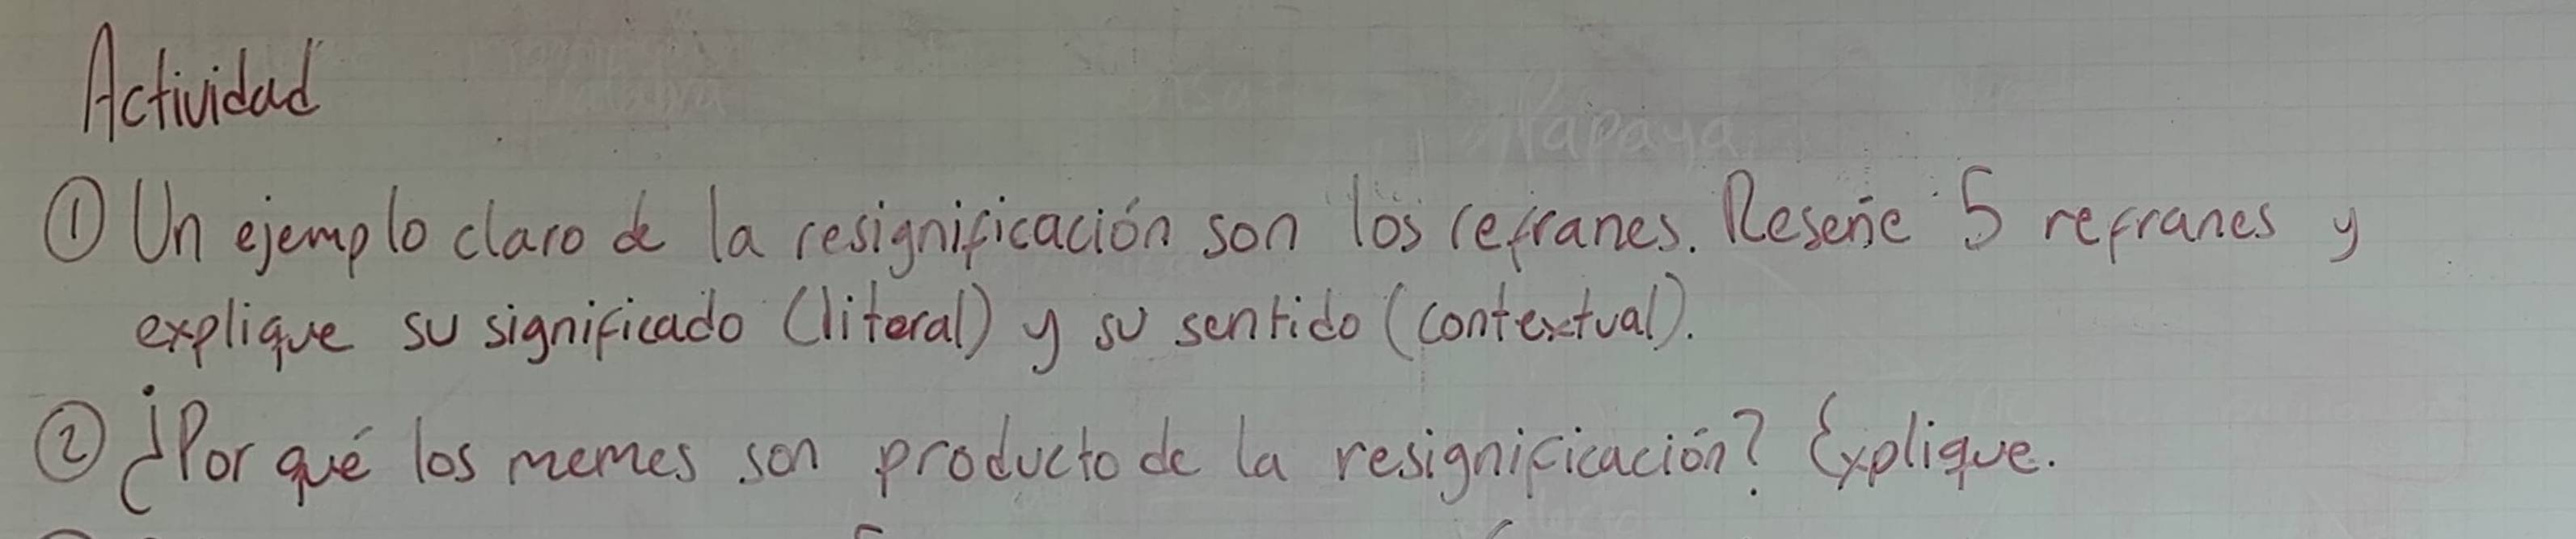 Actividad
① Un ejemplo claro de la resignificación son los refranes. Reseñe 5 refranes y
explique su significado (literal) y su sentido (contextual).
② ¿Por qué los memes son producto de la resignificación? Explique.
Papaya